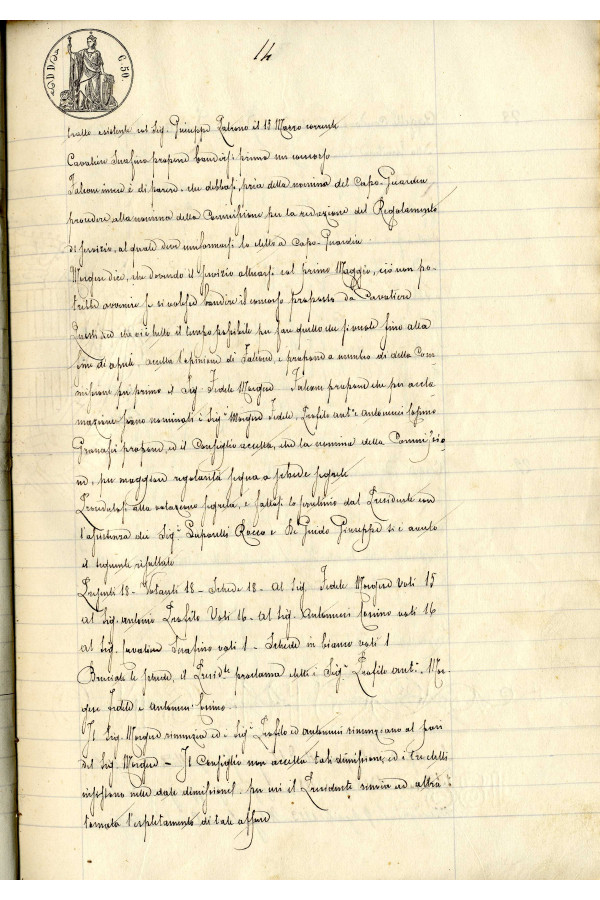 14
C. 50.
tratto esistente col Sig. Giuseppe Patrono il 15 Marzo corrente
Cavaliere Serafino propone bandirsi prima un concorso
Falconi invece è di parere, che debbasi, pria della nomina del Capo-Guardia
procedere alla nomina della Commissione per la redazione del Regolamento
di servizio, al quale deve uniformarsi lo eletto a Capo-Guardia.
Morgese dice, che dovendo il servizio attuarsi col primo Maggio, ciò non po-
trebbe avvenire se si volesse bandire il concorso proposto da Cavaliere
Questi dice che vi è tutto il tempo possibile per fare quello che si vuole fino alla
fine di aprile, accetta l'opinione di Falconi, e propone a membro di detta Com
missione per primo il Sig. Fedele Morgese. Falconi propone che per accla
mazione siano nominati i Sig.ri Morgese Fedele, Profilo Ant.o Antonucci Cosimo
propone, ed il Consiglio accetta, che la nomina della Commissio
ne, per maggiore regolarità segua a schede segrete
Procedutosi alla votazione segreta, e fattosi lo scrutinio dal Presidente con
l'assistenza dei Sig.ri Saponelli Rocco e De Guido Giuseppe si è avuto
il seguente risultato
Presenti 18 - Votanti 18 - Schede 18 - Al Sig. Fedele Morgese Voti 15
Al Sig. Antonio Profilo Voti 16 - Al Sig. Antonucci Cosimo voti 16
Al Sig. Cavaliere Serafino voti 1 - Schede in bianco voti 1
Bruciate le schede, il Presid.te proclama eletti i Sig.ri Profilo Ant.o Mor-
gese Fedele e Antonucci Cosimo.
Il Sig. Morgese rinunzia ed i Sig.ri Profilo ed Antonucci rinunziano al pari
del Sig. Morgese - Il Consiglio non accetta tali dimissioni, ed i tre eletti
insistono nelle date dimissioni, per cui il Presidente rinvia ad altra
tornata l'espletamento di tale affare